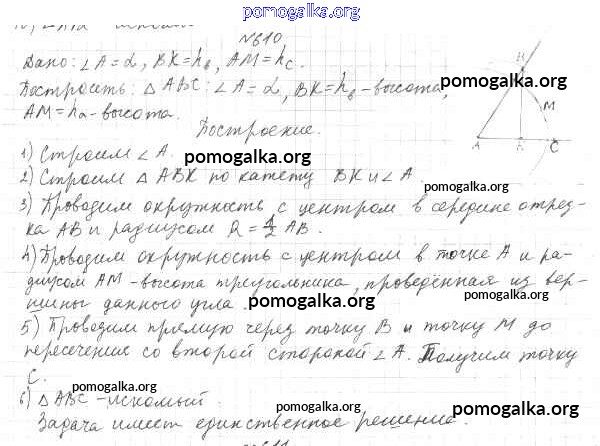 pomogalka.org
№610
Дано: ∠A = α, BK = hв, AM = hc.
Построить: △ ABC: ∠A = α, BK = hв – высота, pomogalka.org
AM = ha – высота.
Построение.
1) Строим ∠A. pomogalka.org
2) Строим △ ABK по катету BK и ∠A. pomogalka.org
3) Проводим окружность с центром в середине отрез-
ка AB и радиусом R = 1/2 AB. pomogalka.org
4) Проводим окружность с центром в точке A и ра-
диусом AM – высота треугольника, проведённая из вер-
шины данного угла. pomogalka.org
5) Проводим прямую через точку B и точку M до
пересечение со второй стороной ∠A. Получим точку
C. pomogalka.org
6) △ ABC – искомый.
Задача имеет единственное решение. pomogalka.org
B
M
A
C